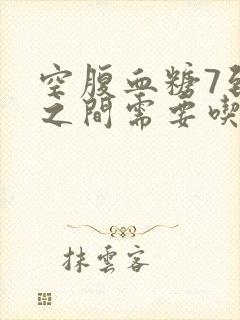 空腹血糖7到
之間需要喫
抹雲客